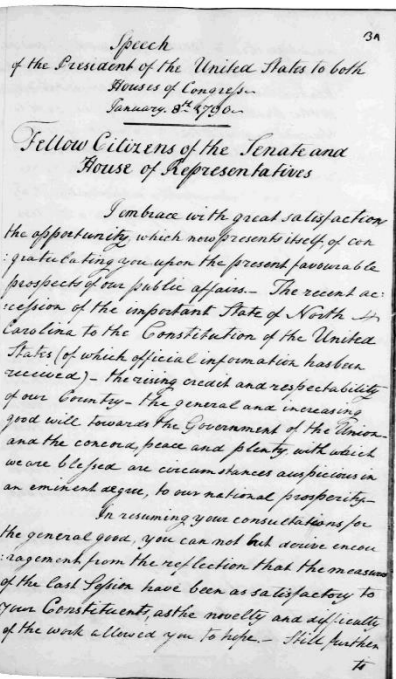 3A
Speech
of the President of the United States to both
Houses of Congress
January. 8th. 1790
Fellow Citizens of the Senate and
House of Representatives
I embrace with great satisfaction
the opportunity, which now presents itself, of con
:gratulating you upon the present favourable
prospects of our public affairs.— The recent ac:
:cession of the important State of North
Carolina to the Constitution of the United
States (of which official information has been
received) – the rising credit and respectability
of our Country – the general and increasing
good will towards the Government of the Union –
and the concord, peace and plenty, with which
we are blessed are circumstances auspicious in
an eminent degree, to our national prosperity –
In resuming your consultations for
the general good, you can not but derive encou
:ragement from the reflection that the measures
of the last Session have been as satisfactory to
your Constituents, as the novelty and difficulty
of the work allowed you to hope. – Still further
to